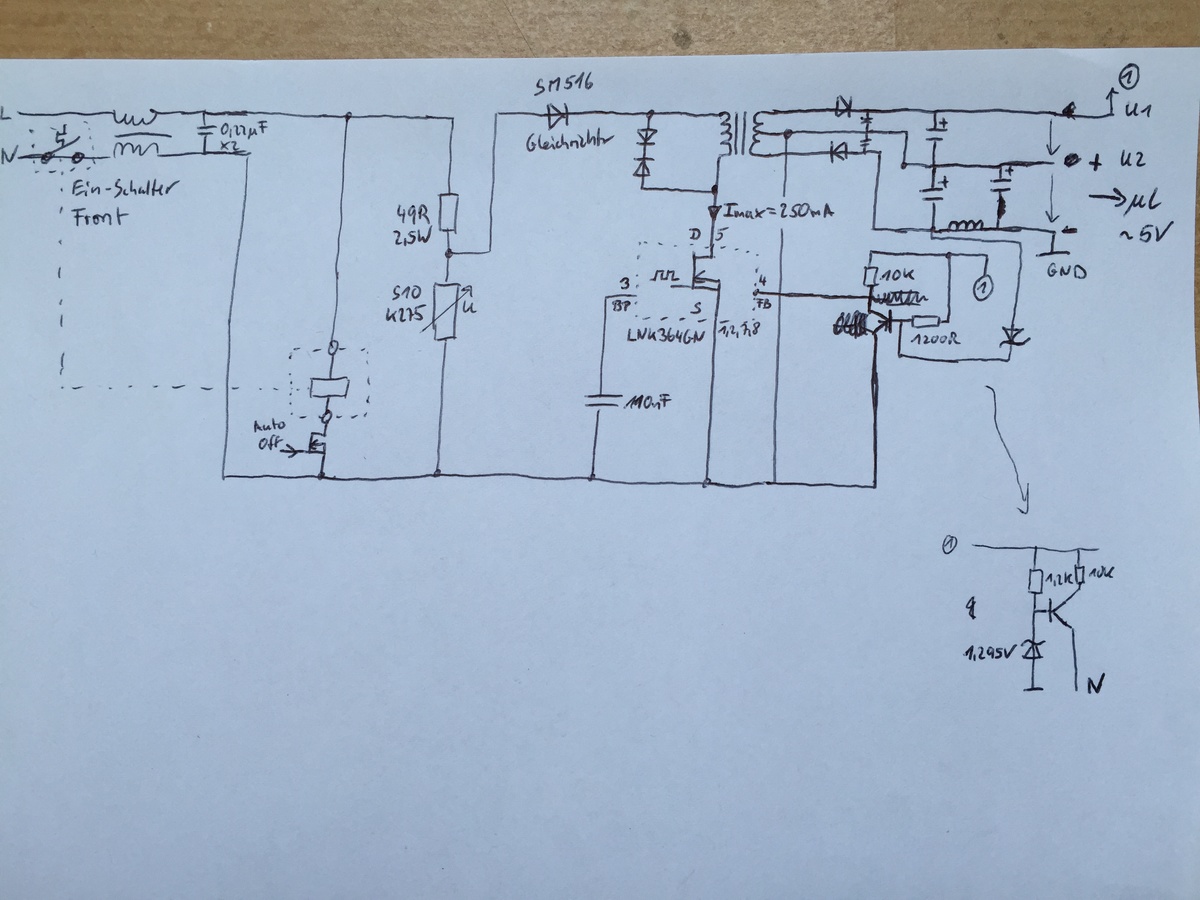 L
N
0,22µF
X2
Ein-Schalter
Front
Auto
Off
49R
2,5W
S10
K275
U
SM516
Gleichrichter
Imax=250mA
D 5
3
BP
S
4
FB
LNK364GN
1,2,7,8
110nF
10K
1
1200R
1
U1
+ U2
µC
~5V
-
GND
1
1,2K
10K
1,295V
N